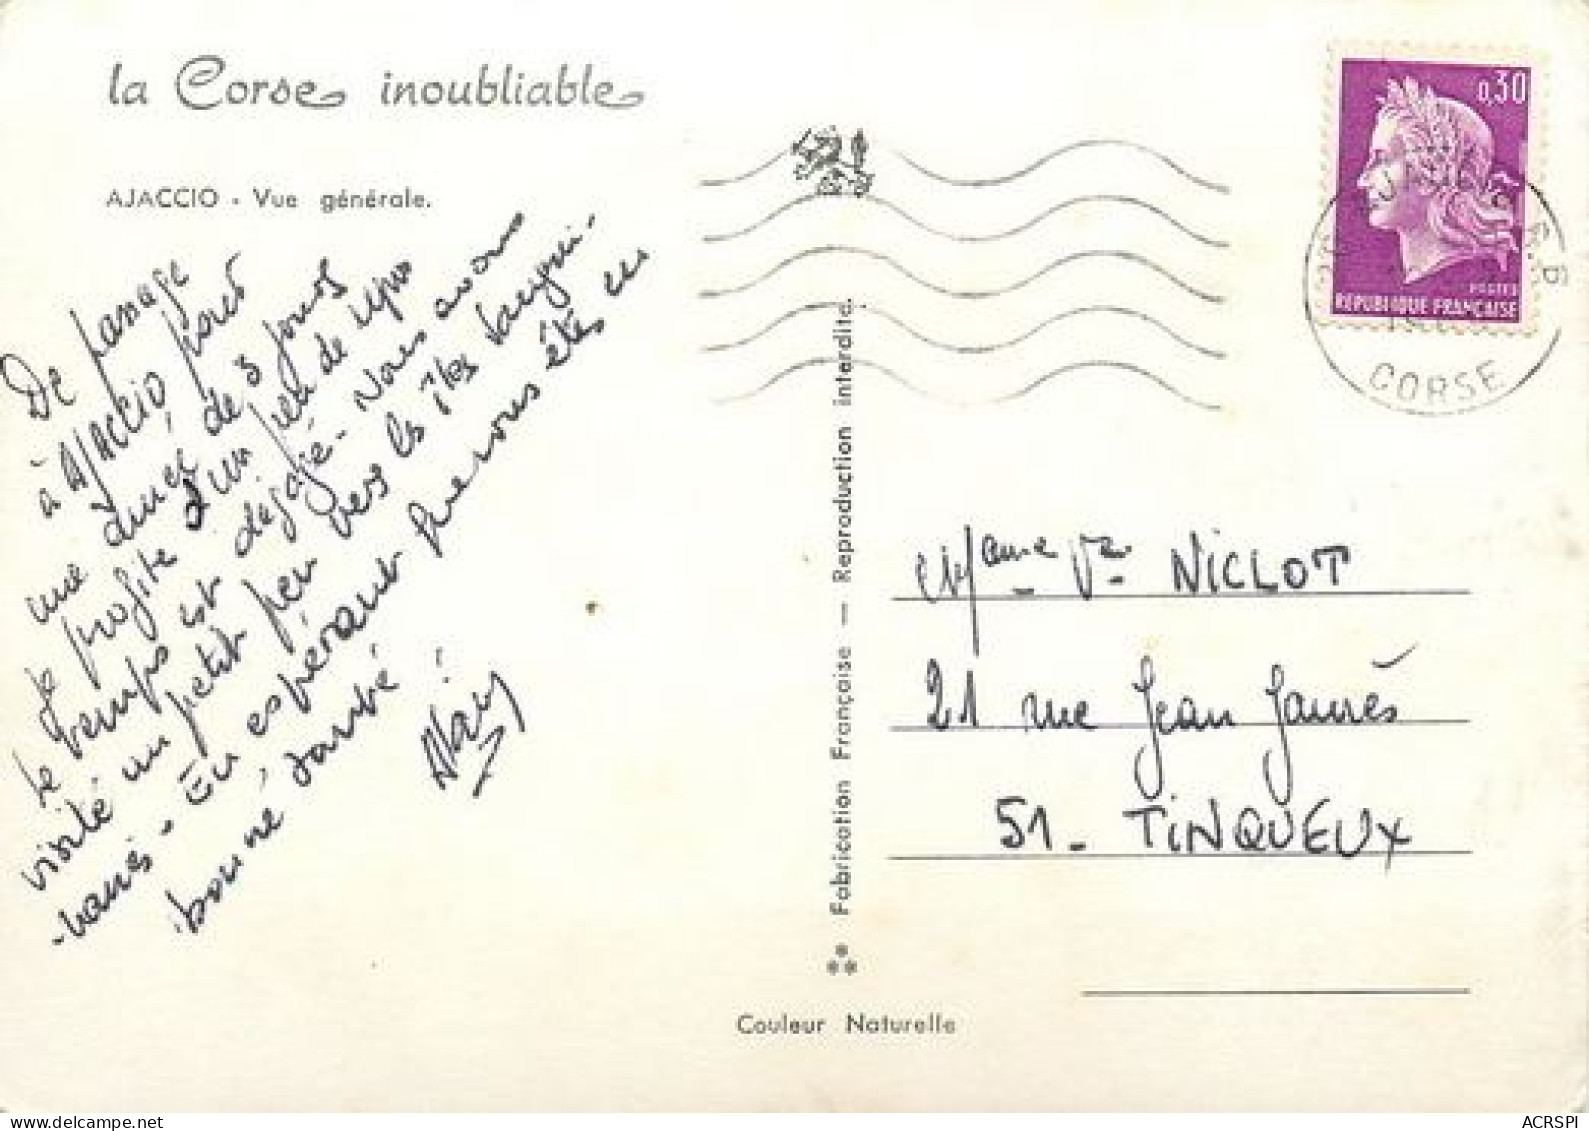 la Corse inoubliable
AJACCIO - Vue générale.
De passage
à AJACCIO, pour
une durée de 3 jours
Je profite d'un peu de repos
le temps est dégagé - Nous avons
visité un petit peu vers les îles sangui-
-naires - En espérant que vous êtes en
bonne santé !
0,30
POSTES
REPUBLIQUE FRANÇAISE
CORSE
Mame Ve NICLOT
21 rue Jean Jaurès
51 - TINQUEUX
Fabrication Française — Reproduction interdite.
Couleur Naturelle
delcampe.net
ACRSPI